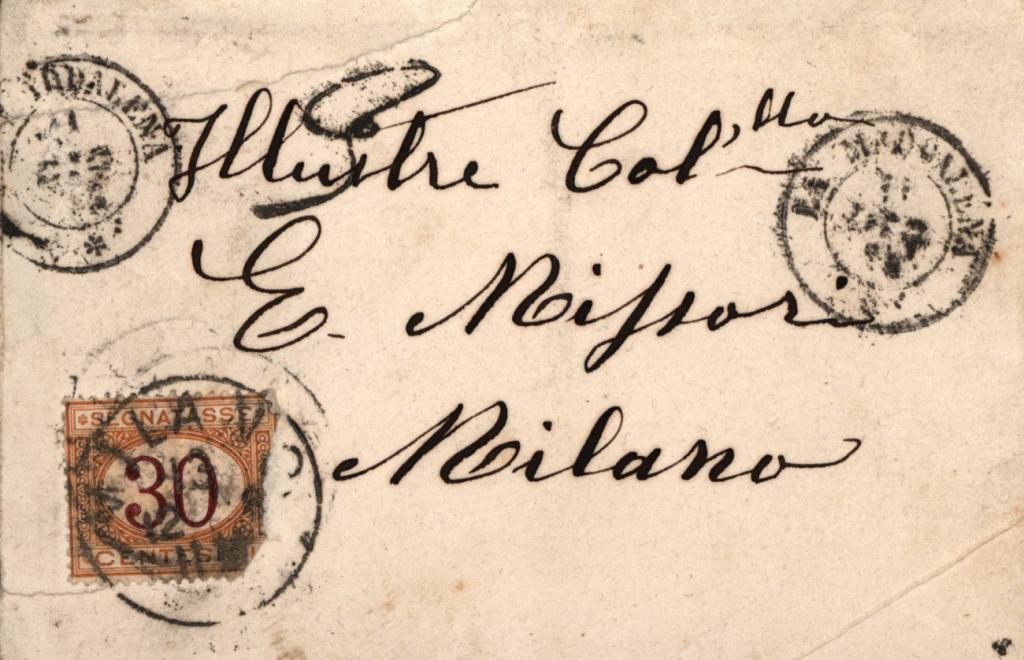 Illustre Col'llo
E. Missori
Milano
LA MADDALENA
SEGNATASSE
30
CENTESIMI
12